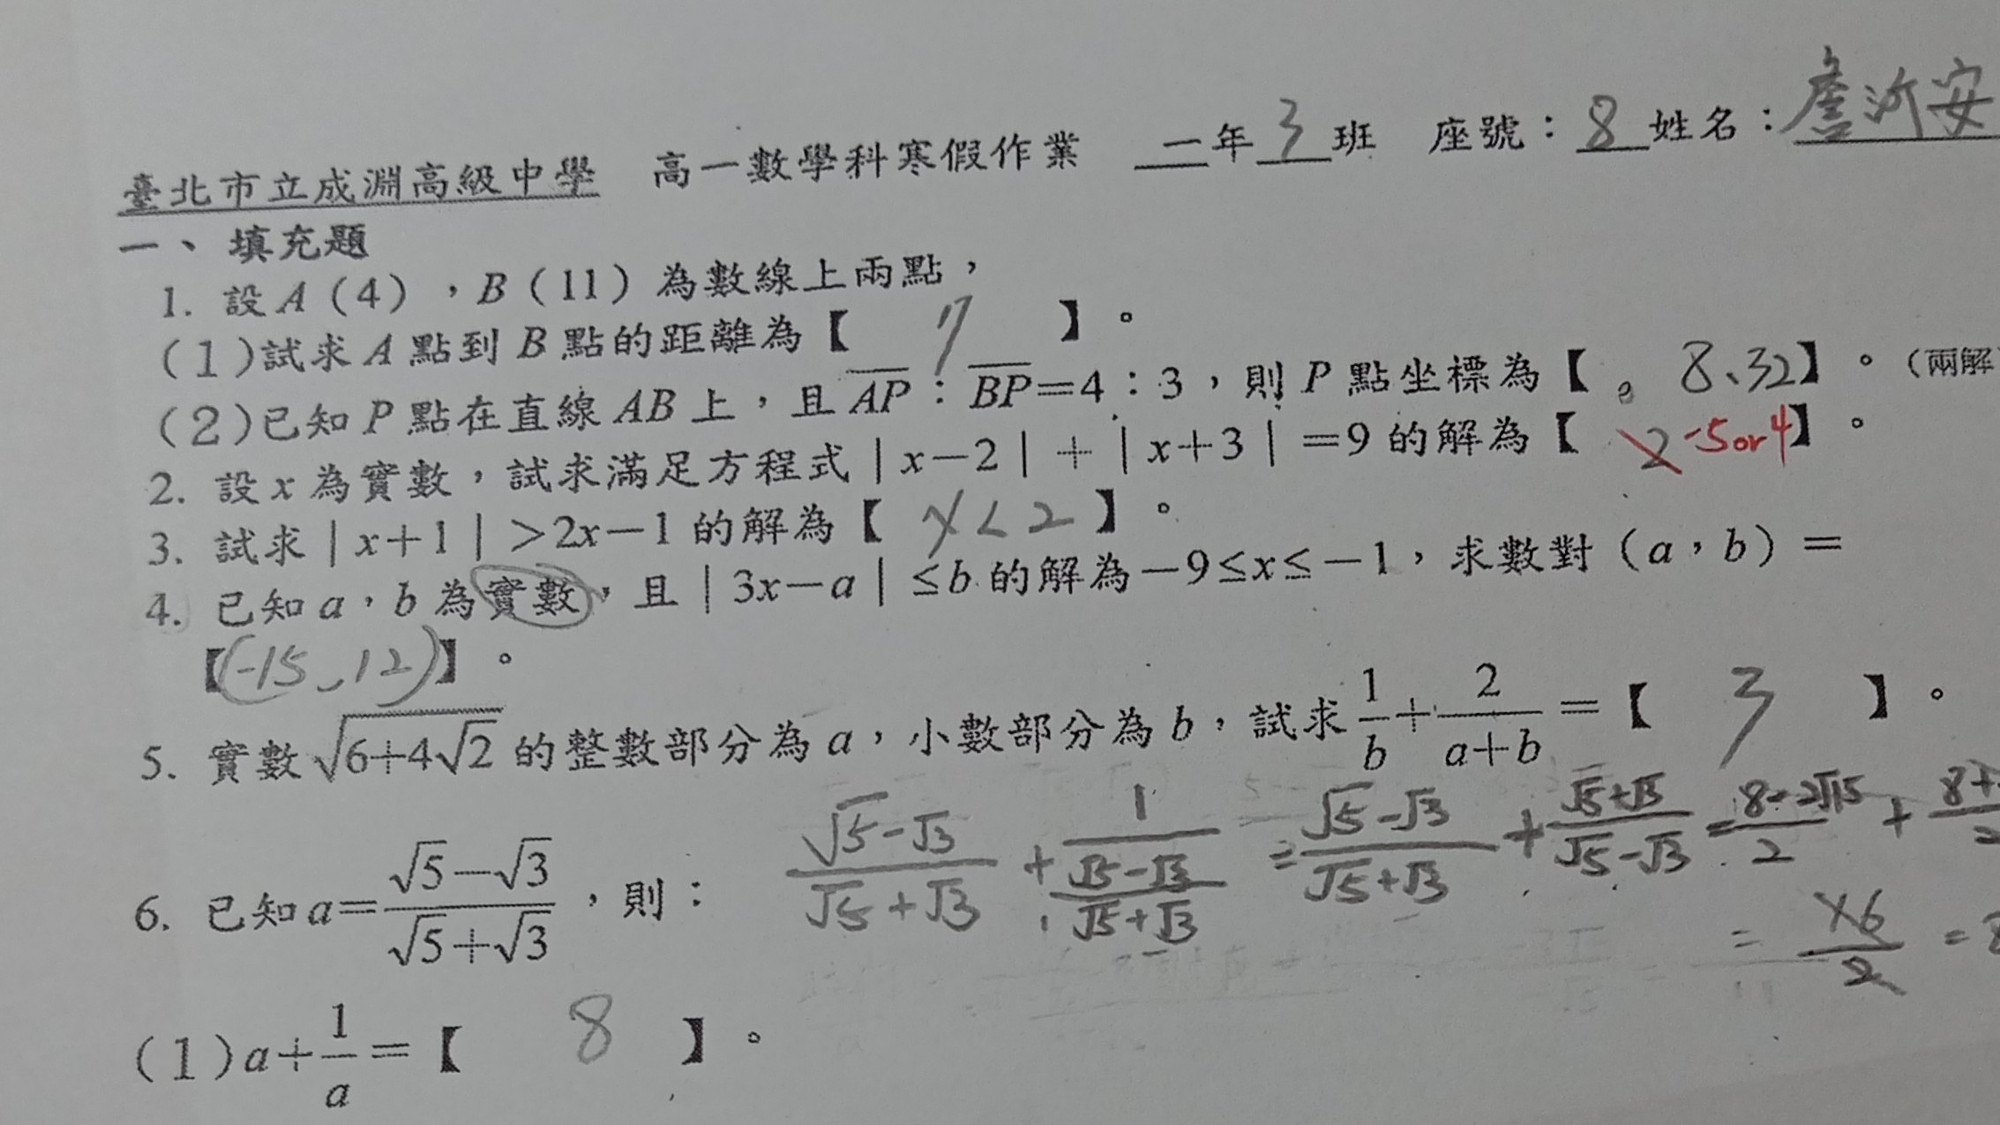 臺北市立成淵高級中學 高一數學科寒假作業 一年3班 座號：8 姓名：詹沂安
一、填充題
1. 設A（4），B（11）為數線上兩點，
(1)試求A點到B點的距離為【 7 】。
(2)已知P點在直線AB上，且AP：BP=4：3，則P點坐標為【 8、32】。（兩解
2. 設x為實數，試求滿足方程式|x－2|＋|x＋3|＝9的解為【 2 -5or4】。
3. 試求|x＋1|＞2x－1的解為【 x＜2 】。
4. 已知a，b為實數，且|3x－a|≤b的解為－9≤x≤－1，求數對（a，b）＝
【(-15、12)】。
5. 實數√(6+4√2)的整數部分為a，小數部分為b，試求1/b+2/(a+b)=【 3 】。
6. 已知a=(√5－√3)/(√5+√3)，則： (√5-√3)/(√5+√3) + 1/((√5-√3)/(√5+√3)) = (√5-√3)/(√5+√3) + (√5+√3)/(√5-√3) = (8-2√15)/2 +
= 16/2 =
(1)a+1/a=【 8 】。